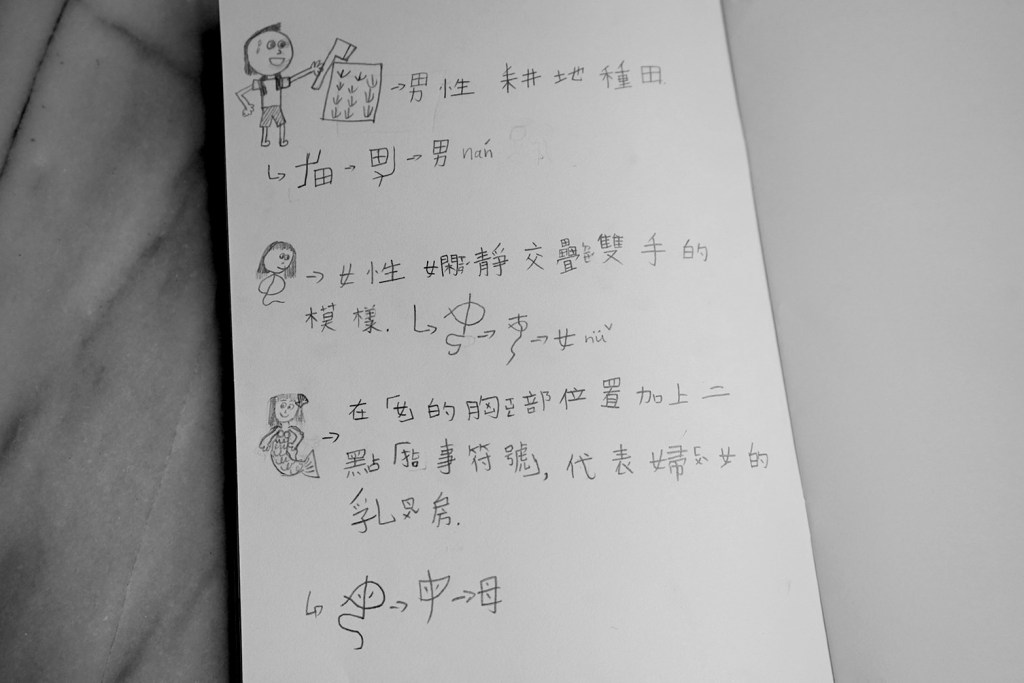 →男性耕地種田.
→男 nań
→女性嫻靜交疊雙手的
模樣.
→女 nüˇ
在「女」的胸部位置加上二
點「指事符號」, 代表婦女的
乳房.
→母